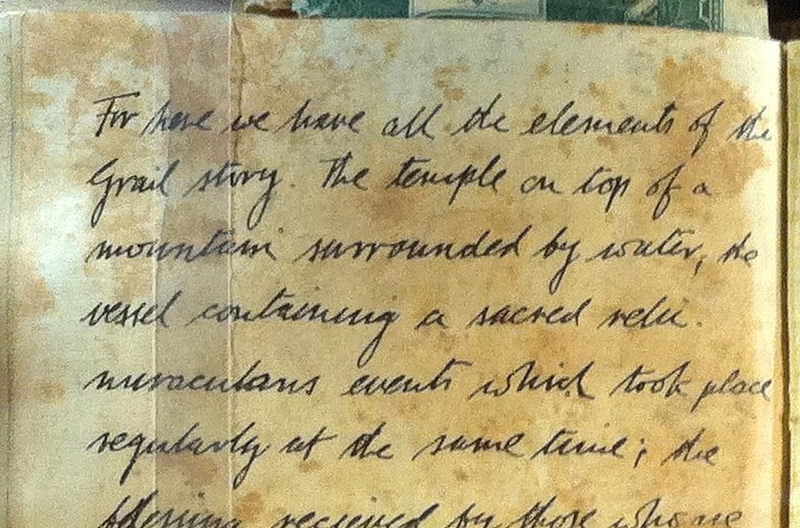 For here we have all the elements of the
Grail story. The temple on top of a
mountain surrounded by water, the
vessel containing a sacred relic.
miraculous events which took place
regularly at the same time; the
blessing received by those who